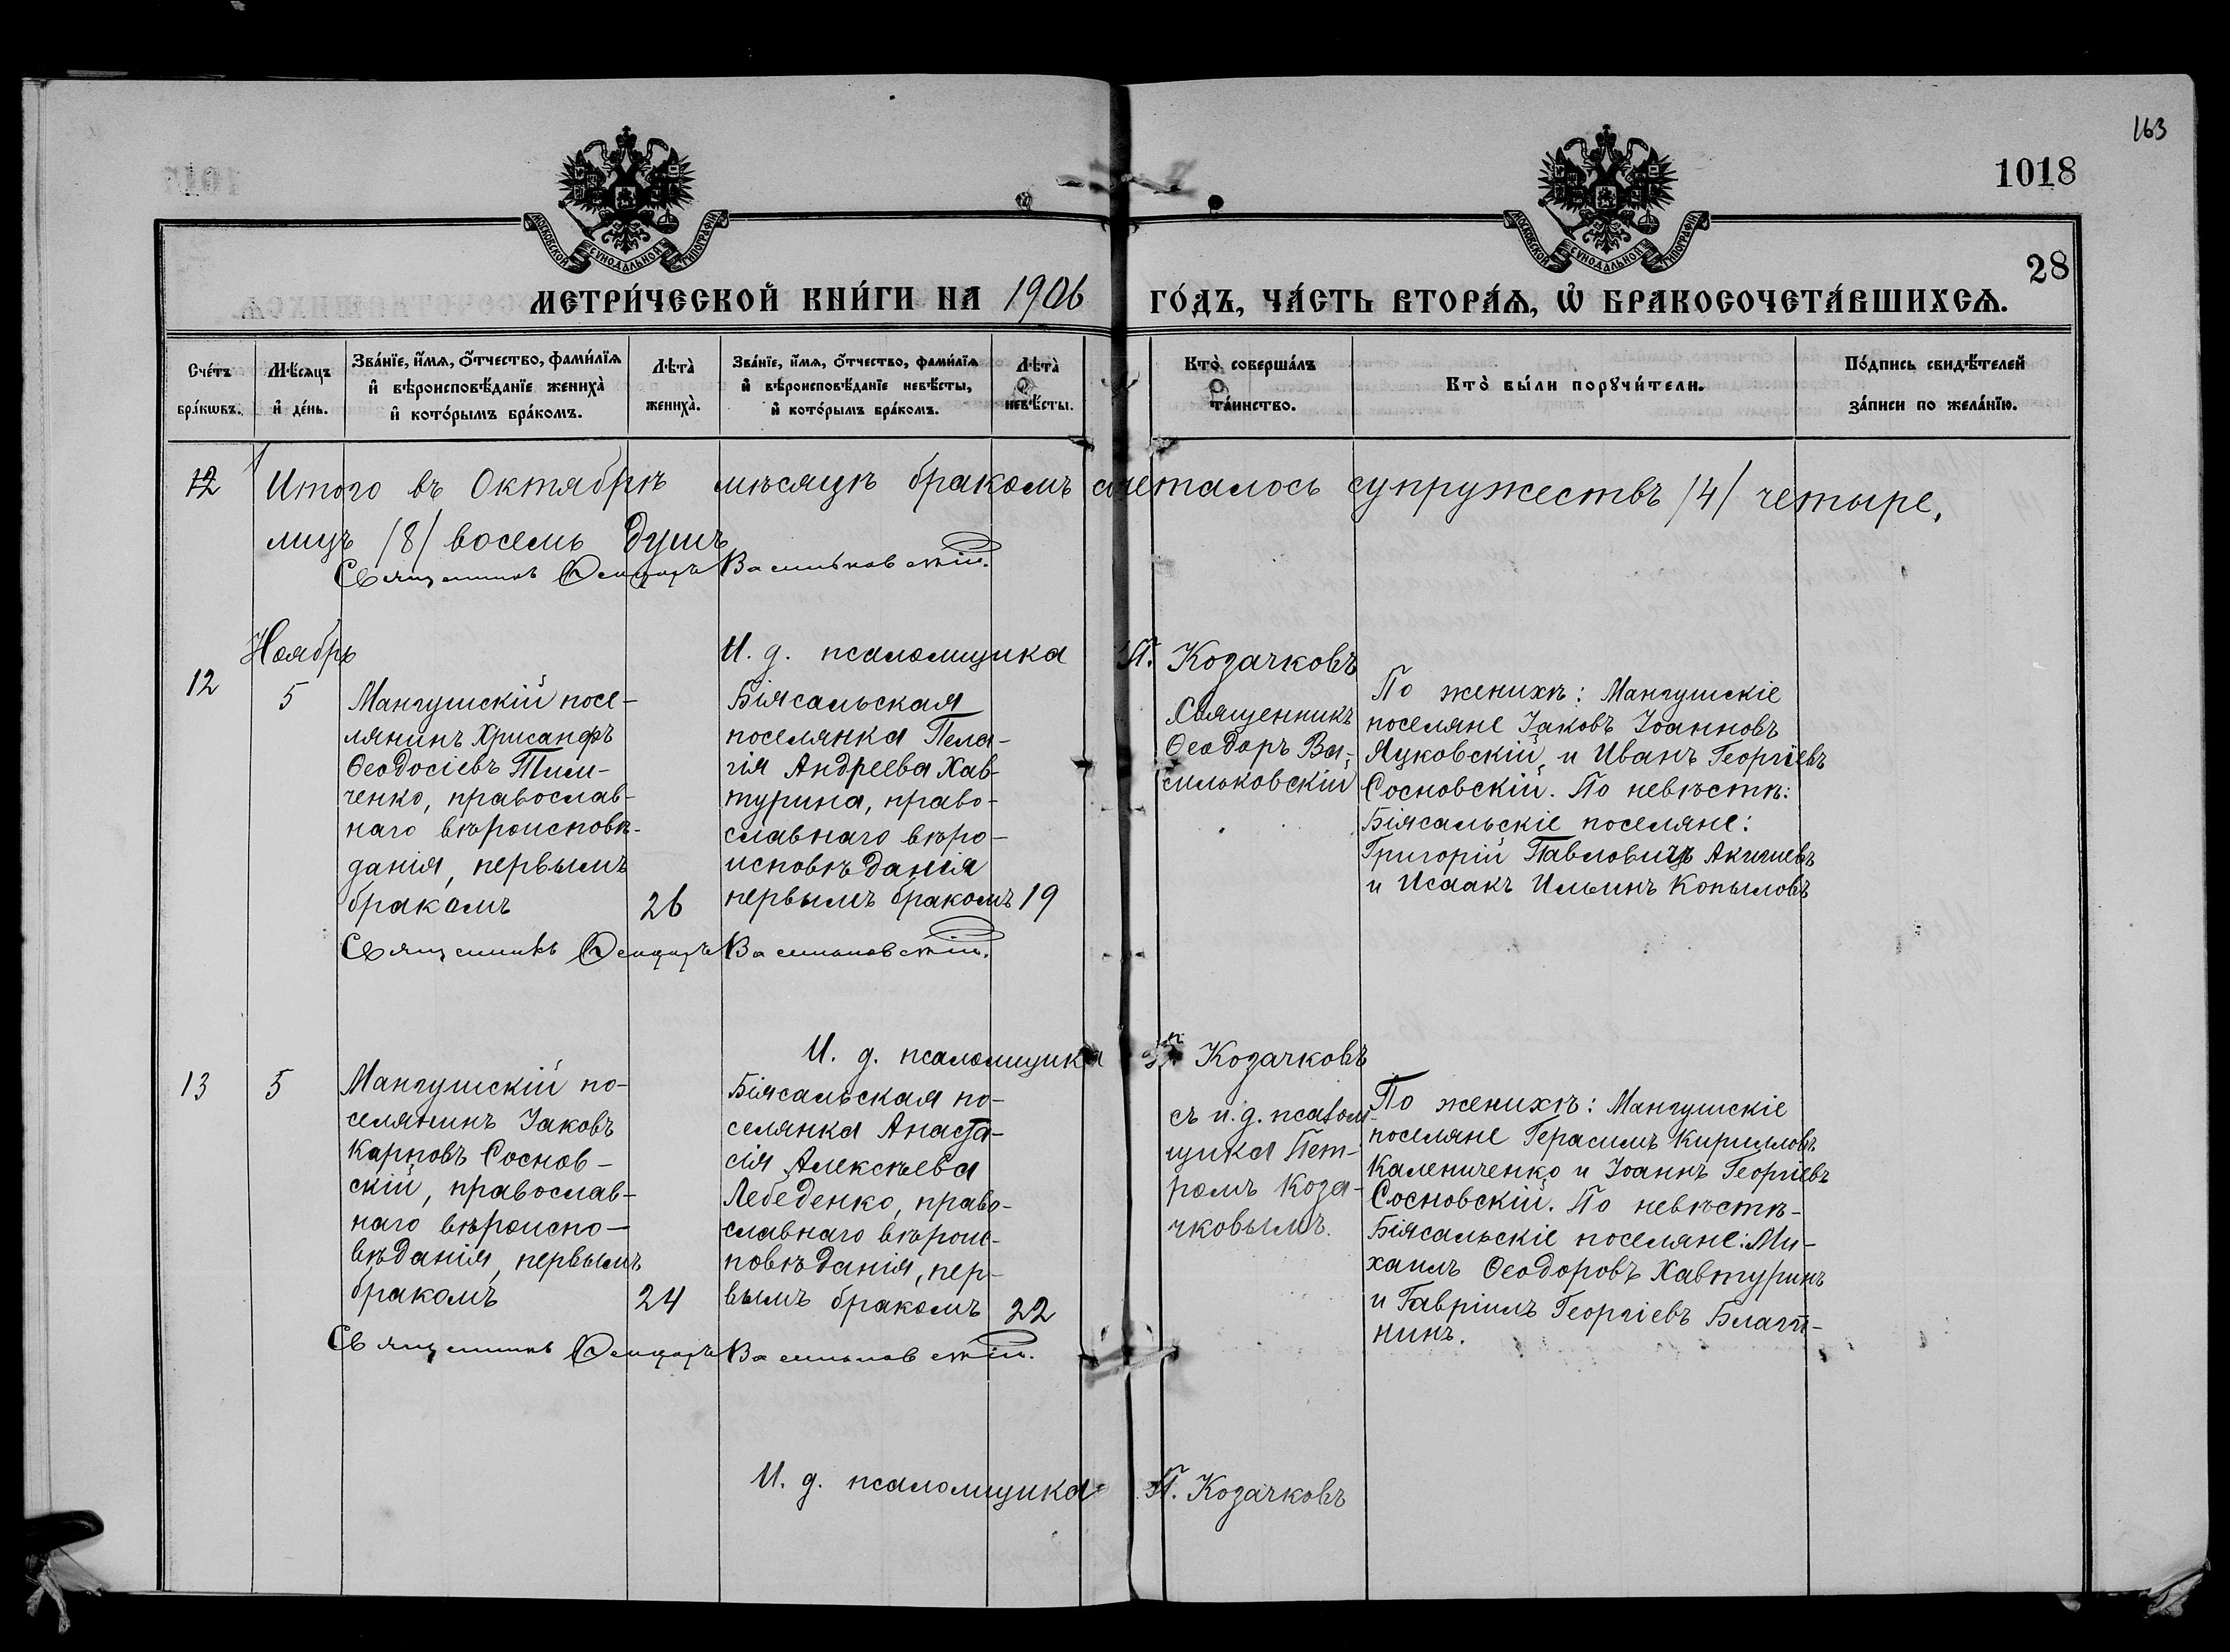 163
1018
28
МЕТРИ́ЧЕСКОЙ КНИ́ГИ НА 1906 ГО́ДЪ, ЧА́СТЬ ВТОРА́Ѧ, Ѿ БРАКОСОЧЕТА́ВШИХСѦ.
МОСКОВСКОЙ СѴНОДАЛЬНОЙ ТИПОГРАФІИ
МОСКОВСКОЙ СѴНОДАЛЬНОЙ ТИПОГРАФІИ
Сче́тъ бра́кѡвъ.
Мѣ́сяцъ и҆ де́нь.
Зва́нїе, и҆́мѧ, ѻ҆́тчество, фами́лїѧ и҆ вѣроисповѣ́данїе жениха̀ и҆ кото́рымъ бра́комъ.
Лѣ́та̀ жениха̀.
Зва́нїе, и҆́мѧ, ѻ҆́тчество, фами́лїѧ и҆ вѣроисповѣ́данїе невѣ́сты, и҆ кото́рымъ бра́комъ.
Лѣ́та̀ невѣ́сты.
Кто̀ соверша́лъ та́инство.
Кто̀ бы́ли порꙋчи́тели.
По́дпись свидѣ́телей за́писи по жела́нїю.
12 Итого въ Октябрѣ мѣсяцѣ бракомъ сочеталось супружествъ /4/ четыре,
лицъ /8/ восемь душъ
Священникъ Ѳеодоръ Васильковскій.
И. д. псаломщика П. Козачковъ
Ноябрь
12
5
Мангушскій посе-
лянинъ Хрисанфъ
Ѳеодосіевъ Тим-
ченко, православ-
наго вѣроисповѣ-
данія, первымъ
бракомъ
26
Біясальская
поселянка Пела-
гія Андреева Хав-
турина, право-
славнаго вѣро-
исповѣданія
первымъ бракомъ
19
Священникъ
Ѳеодоръ Ва-
сильковскій
По женихѣ: Мангушскіе
поселяне Іаковъ Іоанновъ
Яцковскій, и Иванъ Георгіевъ
Сосновскій. По невѣстѣ:
Біясальскіе поселяне:
Григорій Павловичъ
и Исаакъ Ильинъ Копыловъ
Священникъ Ѳеодоръ Васильковскій.
И. д. псаломщика П. Козачковъ
13
5
Мангушскій по-
селянинъ Іаковъ
Карповъ Соснов-
скій, православ-
наго вѣроиспо-
вѣданія, первымъ
бракомъ
24
Біясальская по-
селянка Анаста-
сія Алексѣева
Лебеденко, право-
славнаго вѣроис-
повѣданія, пер-
вымъ бракомъ
22
съ и. д. псалом-
щика Пет-
ромъ Коза-
чковымъ.
По женихѣ: Мангушскіе
поселяне Герасимъ Кирилловъ
Калениченко и Іоаннъ Георгіевъ
Сосновскій. По невѣстѣ-
Біясальскіе поселяне: Ми-
хаилъ Ѳеодоровъ Хавтуринъ
и Гавріилъ Георгіевъ
Священникъ Ѳеодоръ Васильковскій.
И. д. псаломщика П. Козачковъ